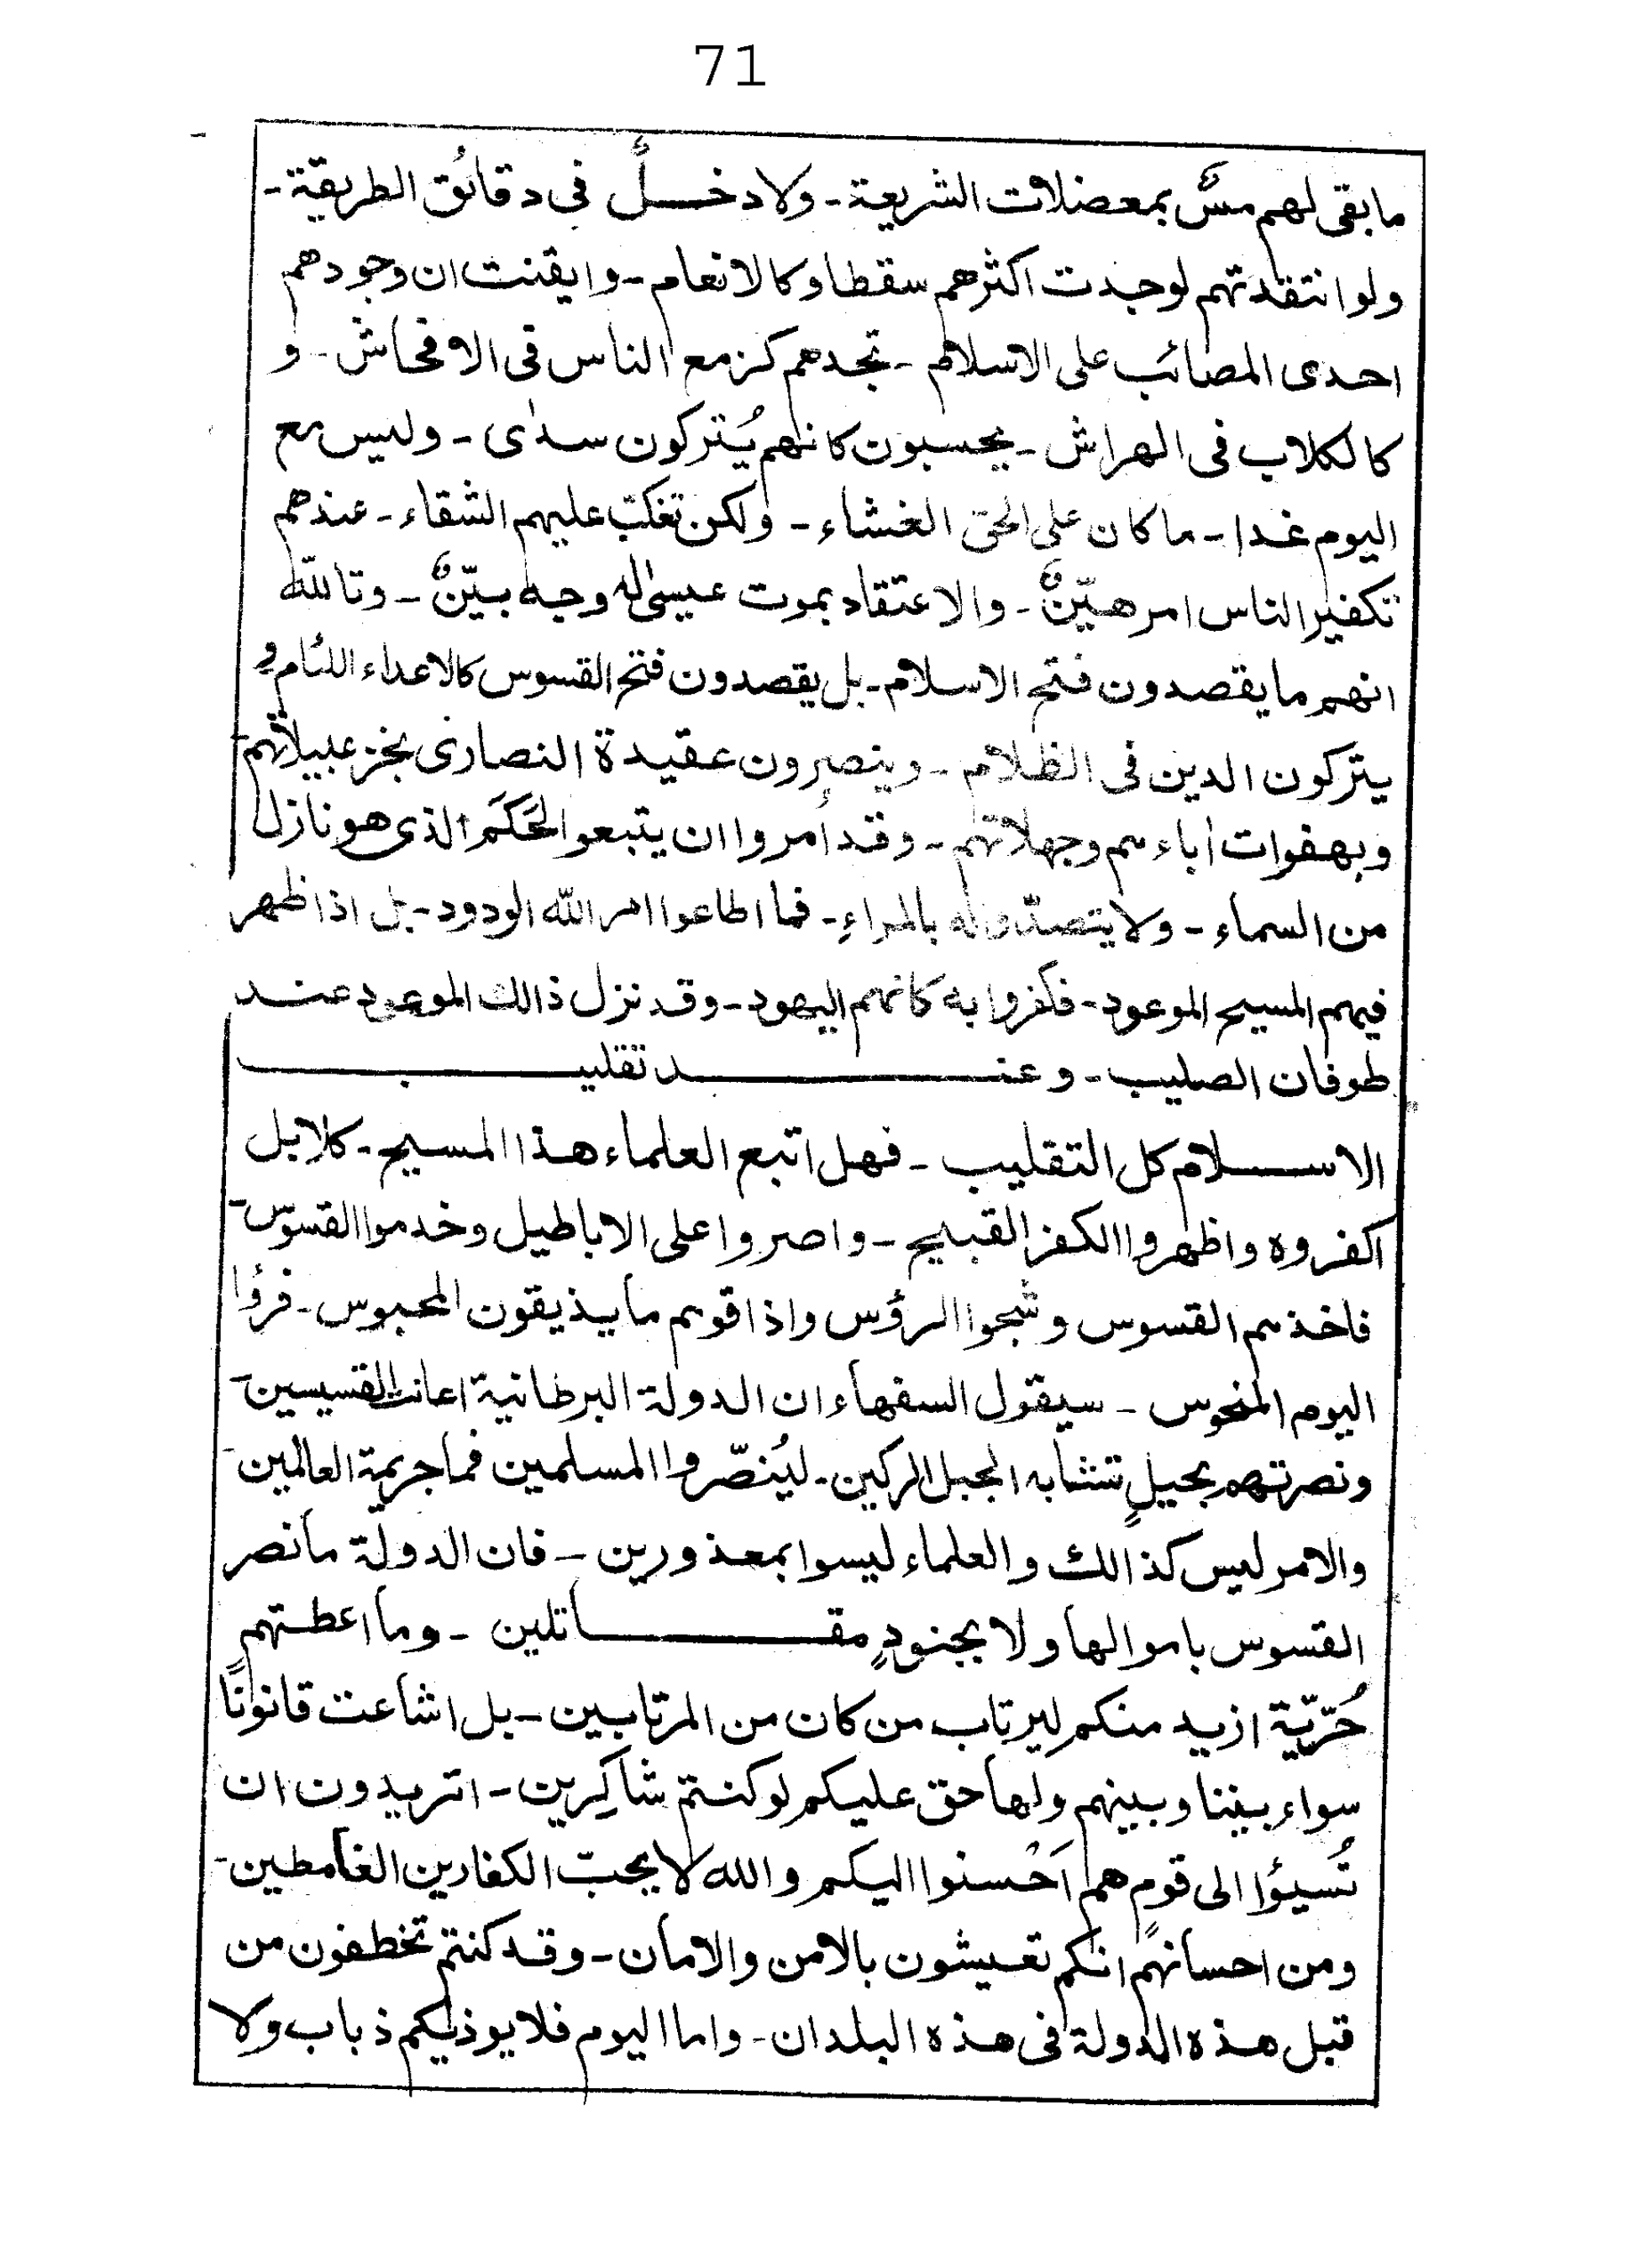 71
ما بقی لهم مسٌّ بمعضلات الشریعة۔ ولا دخـــلٌ فی دقائق الطریقة۔
ولو انتقدتهم لوجدت اکثرهم سقطا وکالانعام۔ وایقنت ان وجودهم
احدی المصائب علی الاسلام۔ تجدهم کزمع الناس فی الافحاش۔ و
کالکلاب فی الهراش۔ یحسبون کانهم یُترکون سدًی۔ ولیس مع
الیوم غدا۔ ما کان علی الحق الغشاء۔ ولکن تغلّبت علیهم الشقاء۔ عندهم
تکفیر الناس امر هیّنٌ۔ والاعتقاد بموت عیسٰی له وجه بیّنٌ۔ وتاللّٰه
انهم ما یقصدون فتح الاسلام۔ بل یقصدون فتح القسوس کالاعداء اللئام و
یترکون الدین فی الظلام۔ وینصرون عقیدة النصاری بخزعبیلاتهم۔
وبهفوات اٰباءهم وجهلاتهم۔ وقد اُمروا ان یتبعوا الحَکَم الذی هو نازل
من السماء۔ ولا یتصدّوا له بالمراءِ۔ فما اطاعوا امر اللّٰه الودود۔ بل اذا ظهر
فیهم المسیح الموعود۔ فکفروا به کانهم الیهود۔ وقد نزل ذالك الموعود عنــد
طوفان الصلیب۔ وعنــــــد تقلیــــب
الاســـلام کل التقلیب۔ فهل اتبع العلماء هذا المسیح۔ کلا بل
اکفروه واظهروا الکفر القبیح۔ واصروا علی الاباطیل وخدموا القسوس۔
فاخذهم القسوس وشجوا الرؤس واذاقوهم ما یذیقون المحبوس۔ فرؤا
الیوم المنحوس۔ سیقول السفهاء ان الدولة البرطانیة اعانت القسیسین۔
ونصرتهم بحیلٍ تتشابه الجبل الرکین۔ لیُنصّروا المسلمین فما جریمة العالمین۔
والامر لیس کذالك والعلماء لیسوا بمعذورین۔ فان الدولة ما نصر
القسوس باموالها ولا بجنودٍ مقـــــاتلین۔ وما اعطتهم
حُرّیّة ازید منکم لِیرتاب من کان من المرتابین۔ بل اشاعت قانونًا
سواء بیننا وبینهم ولها حق علیکم لو کنتم شاکِرین۔ اتریدون ان
تُسیؤا الی قومٍ هم اَحْسنوا الیکم واللّٰه لا یحبّ الکفارین الغامطین۔
ومن احسانهم انکم تعیشون بالامن والامان۔ وقد کنتم تخطفون من
قبل هذه الدولة فی هذه البلدان۔ واما الیوم فلا یوذیکم ذباب ولا